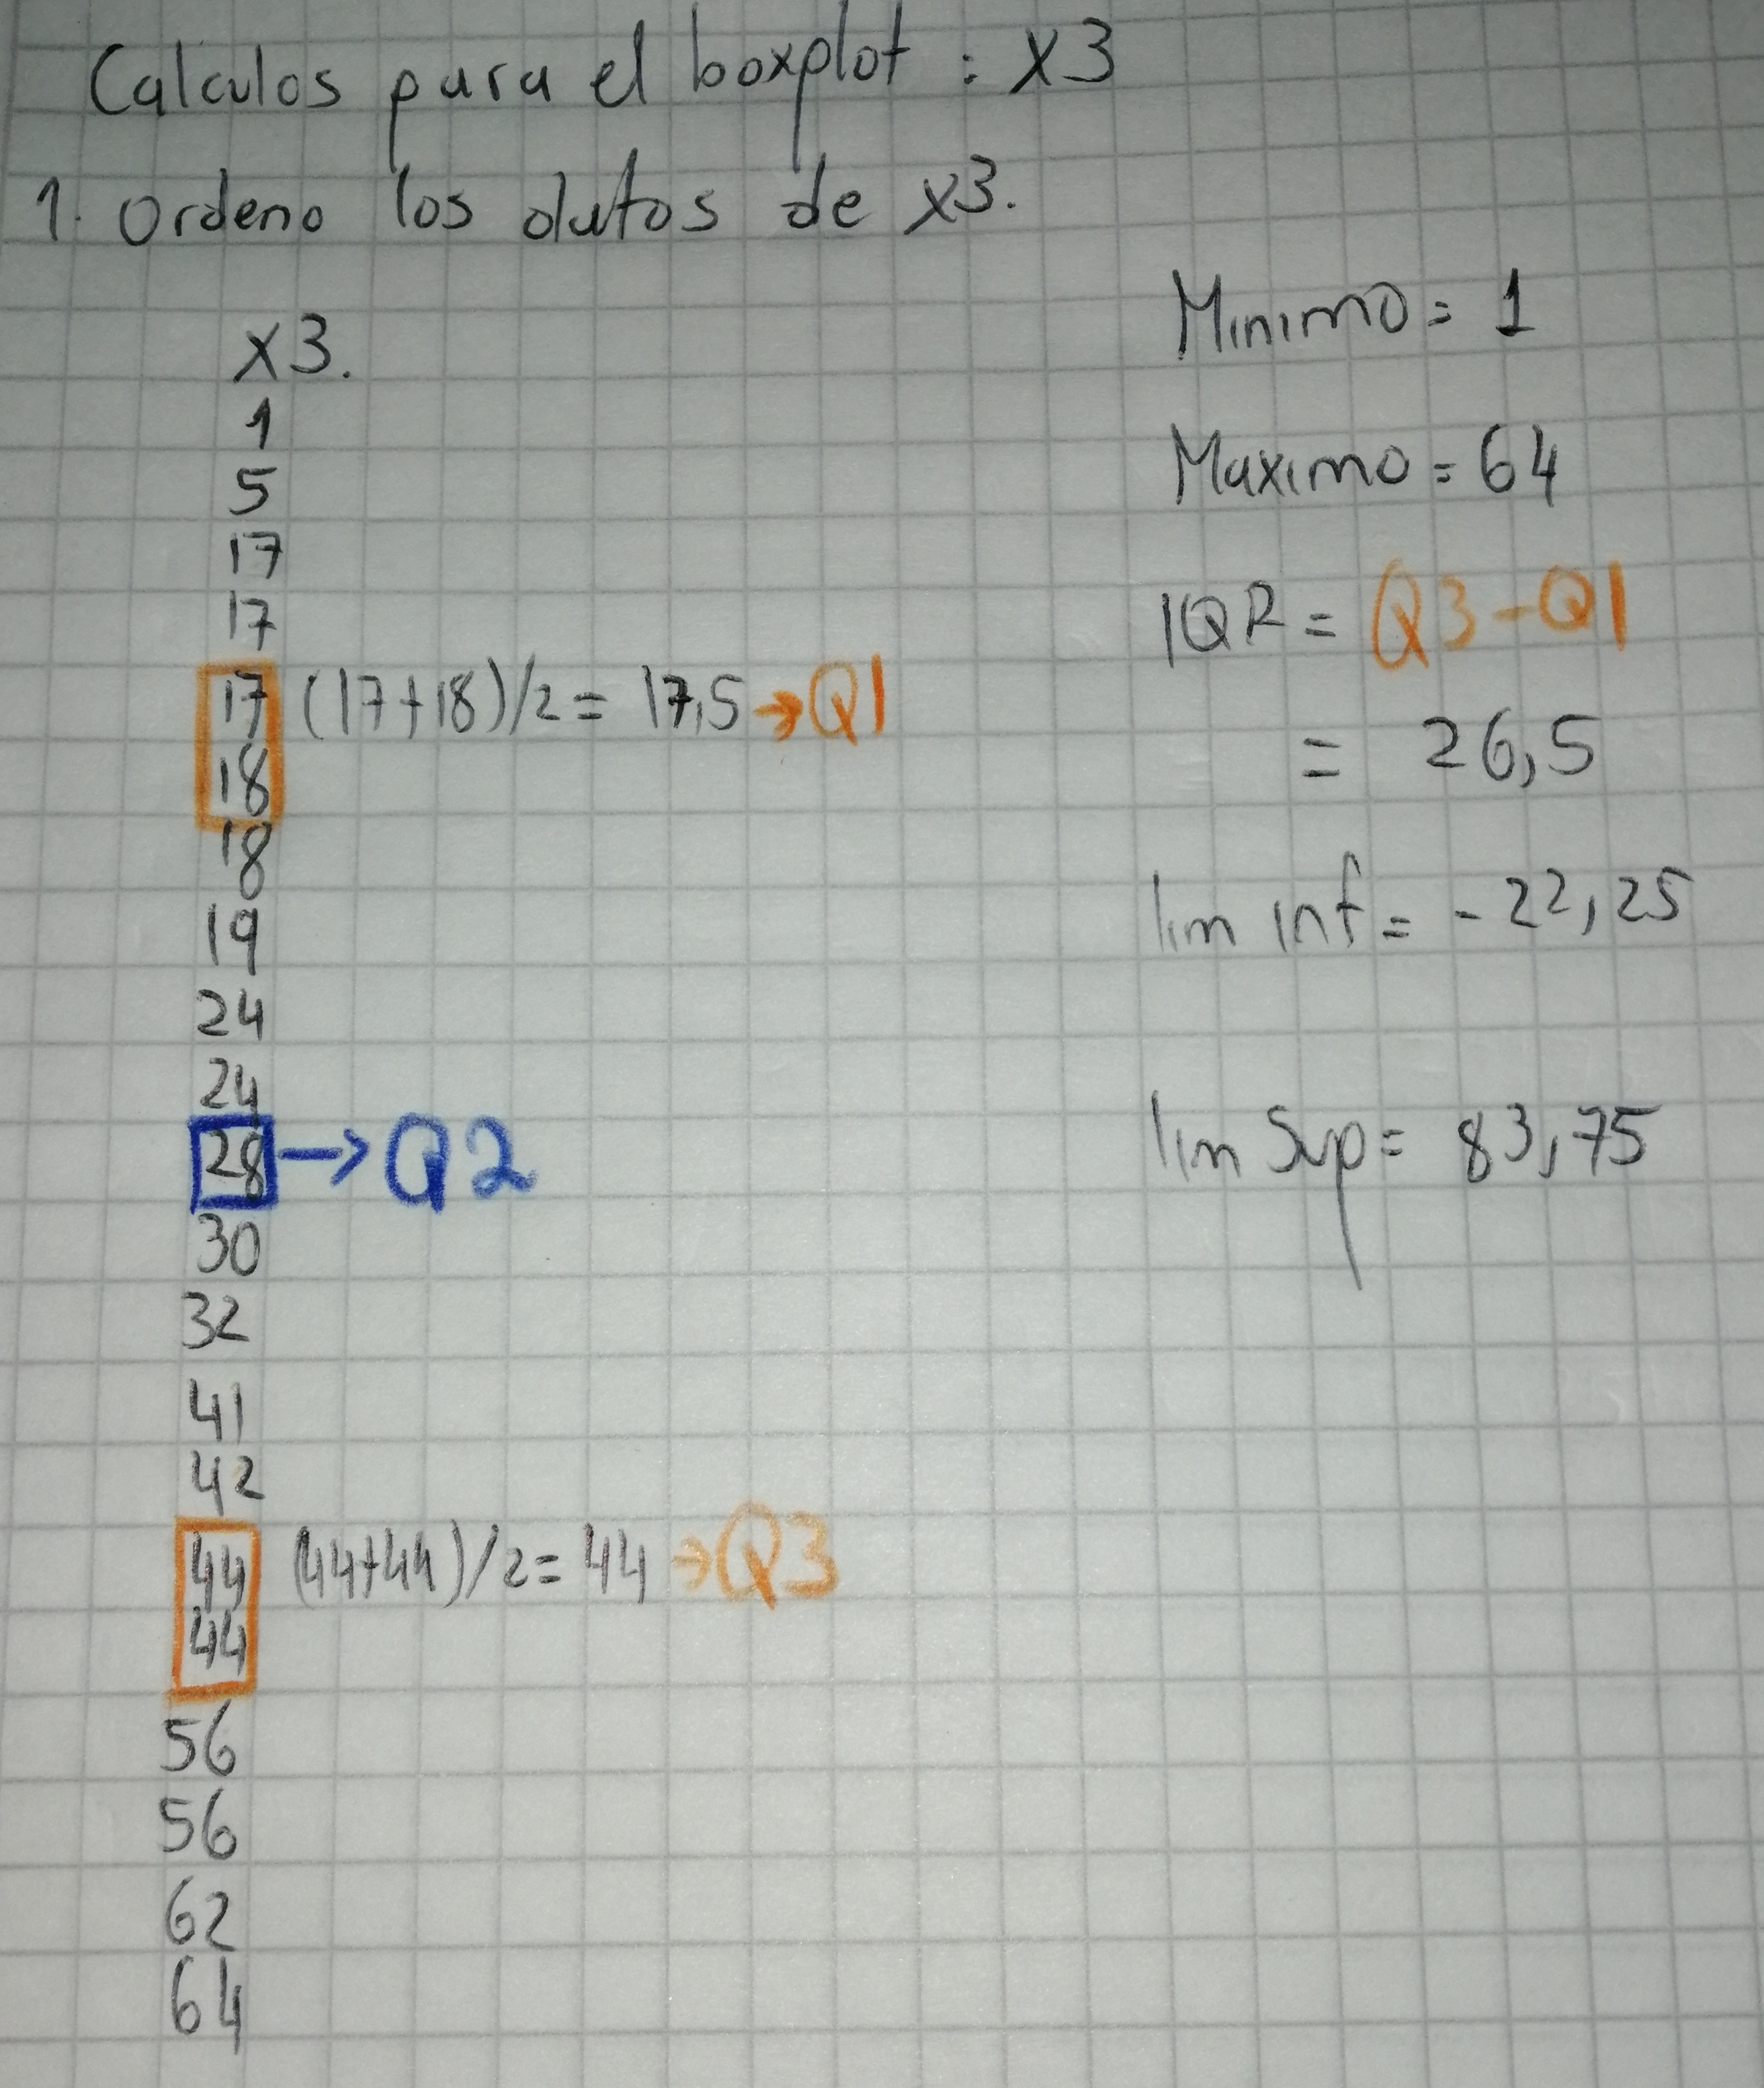 Calculos para el boxplot : x3
1. Ordeno los datos de x3.
x3.
1
5
17
17
17 (17+18)/2 = 17,5 → Q1
18
18
19
24
24
28 → Q2
30
32
41
42
44 (44+44)/2 = 44 → Q3
44
56
56
62
64
Minimo = 1
Maximo = 64
IQR = Q3 - Q1
= 26,5
lim inf = -22,25
lim Sup = 83,75